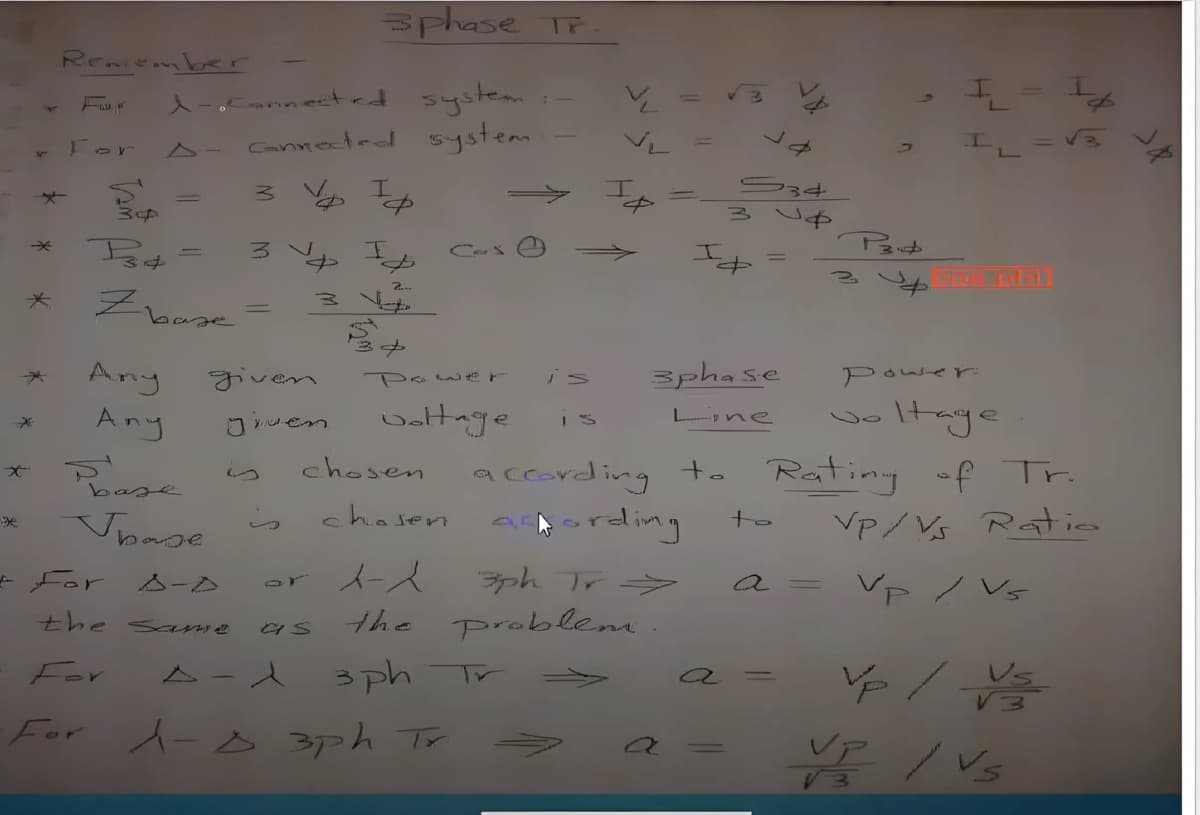 3phase Tr.
Remember -
* For ⅄-Connected system :- V_L = √3 V_φ , I_L = I_φ
* For Δ- Connected system - V_L = V_φ , I_L = √3 V_φ
* S_3φ = 3 V_φ I_φ ⇒ I_φ = S_3φ / 3 V_φ
* P_3φ = 3 V_φ I_φ Cos Θ ⇒ I_φ = P_3φ / 3 V_φ
* Z_base = 3 V_φ² / S_3φ
* Any given Power is 3phase power.
* Any given voltage is Line voltage.
* S_base is chosen according to Rating of Tr.
* V_base is chosen according to VP/Vs Ratio
* For Δ-Δ or ⅄-⅄ 3ph Tr ⇒ a = VP / Vs
the same as the problem.
- For Δ-⅄ 3ph Tr ⇒ a = VP / Vs/√3
- For ⅄-Δ 3ph Tr ⇒ a = VP/√3 / Vs